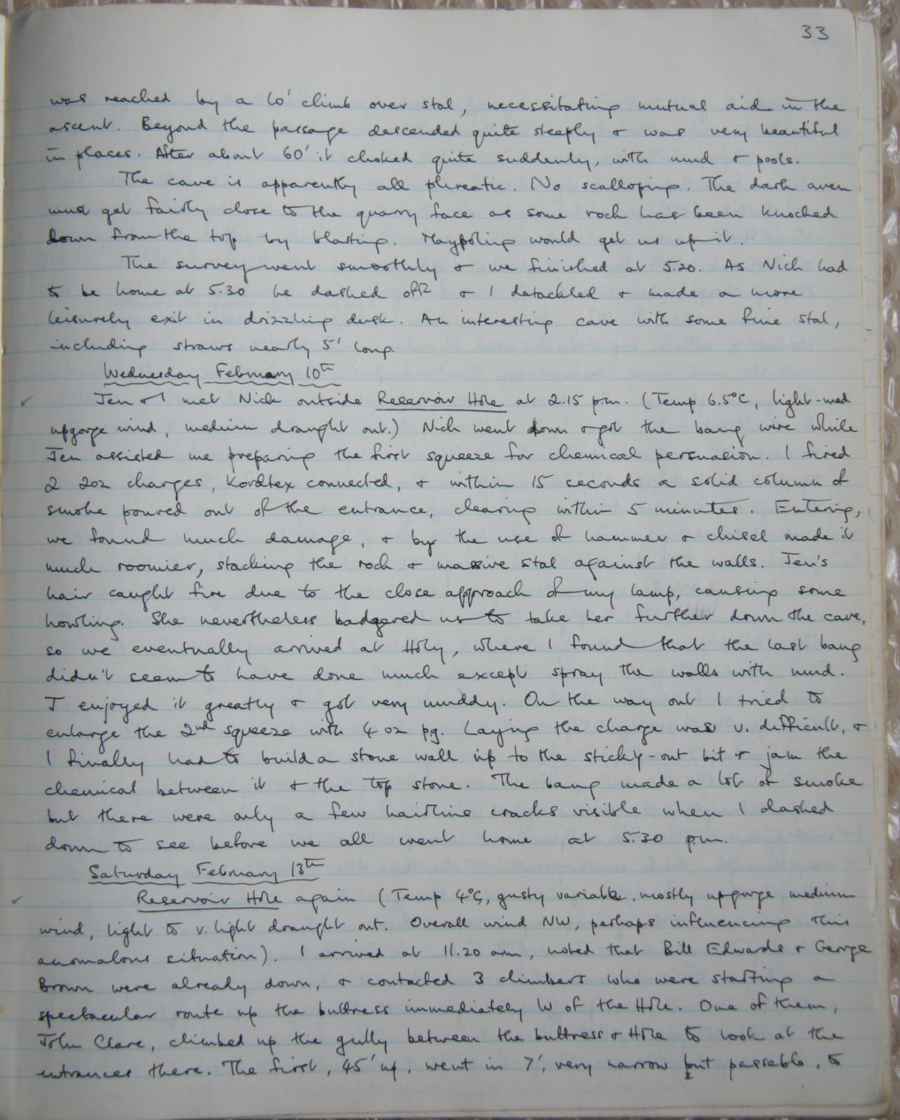 33
was reached by a 60' climb over stal, necessitating mutual aid in the
ascent. Beyond the passage descended quite steeply & was very beautiful
in places. After about 60' it choked quite suddenly, with mud & pools.
The cave is apparently all phreatic. No scalloping. The dark aven
must get fairly close to the quarry face as some rock has been knocked
down from the top by blasting. Maypoling would get us up it.
The survey went smoothly & we finished at 5.20. As Nich had
to be home at 5.30 he dashed off & I detackled & made a more
leisurely exit in drizzling dusk. An interesting cave with some fine stal,
including straws nearly 5' long
Wednesday February 10th
Jen & I met Nich outside Reservoir Hole at 2.15 pm. (Temp 6.5°C, light-med
upgorge wind, medium draught out.) Nich went down & got the bang wire while
Jen assisted me preparing the first squeeze for chemical persuasion. I fired
2 2oz charges, Kordtex connected, & within 15 seconds a solid column of
smoke poured out of the entrance, clearing within 5 minutes. Entering,
we found much damage, & by the use of hammer & chisel made it
much roomier, stacking the rock & massive stal against the walls. Jen's
hair caught fire due to the close approach of my lamp, causing some
howling. She nevertheless badgered us to take her further down the cave,
so we eventually arrived at Holy, where I found that the last bang
didn't seem to have done much except spray the walls with mud.
J enjoyed it greatly & got very muddy. On the way out I tried to
enlarge the 2nd squeeze with 4 oz pg. Laying the charge was v. difficult, &
I finally had to build a stone wall up to the sticky-out bit & jam the
chemical between it & the top stone. The bang made a lot of smoke
but there were only a few hairline cracks visible when I dashed
down to see before we all went home at 5.30 pm.
Saturday February 13th
Reservoir Hole again (Temp 4°C, gusty variable, mostly upgorge medium
wind, light to v. light draught out. Overall wind NW, perhaps influencing this
anomalous situation). I arrived at 11.20 am, noted that Bill Edwards & George
Brown were already down, & contacted 3 climbers who were starting a
spectacular route up the buttress immediately W of the Hole. One of them,
John Clare, climbed up the gully between the buttress & Hole to look at the
entrances there. The first, 45' up, went in 7', very narrow but passable, to